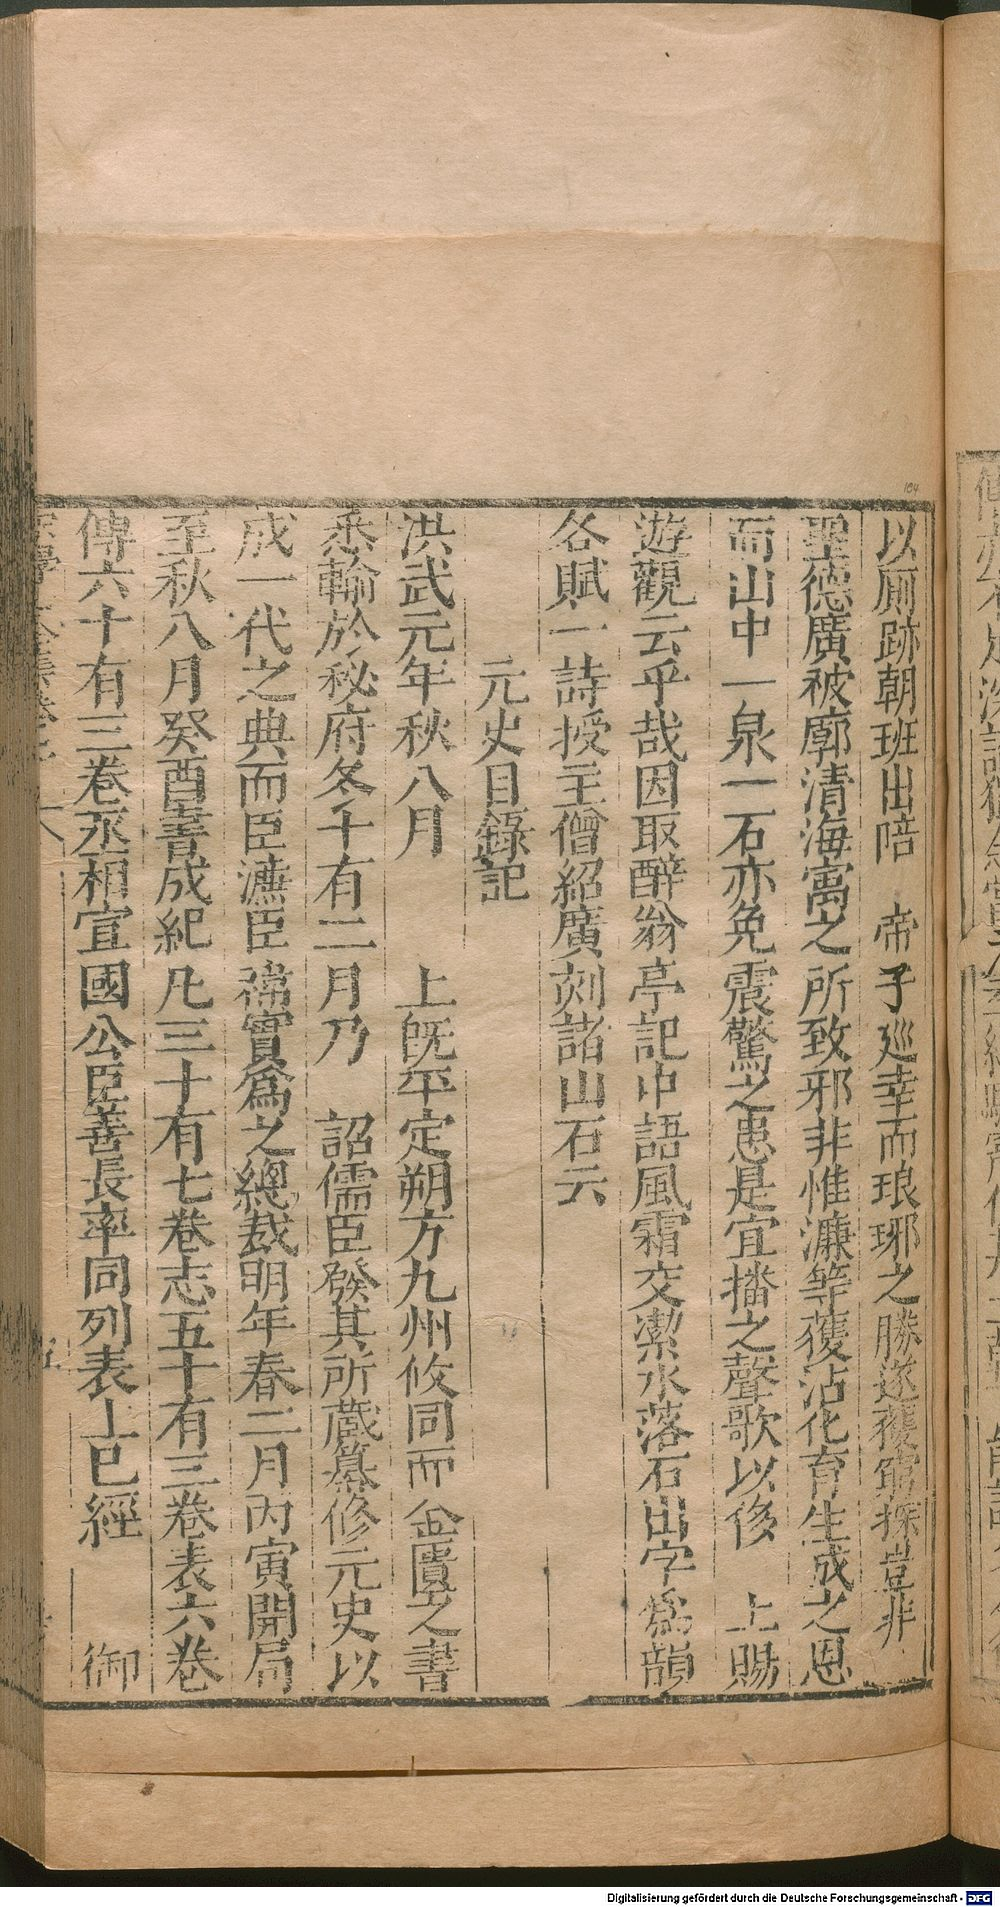 以厠跡朝班出陪 帝子巡幸而琅琊之勝遂獲窮探豈非
聖德廣被廓清海寓之所致邪非惟濂等獲沾化育生成之恩
而山中一泉一石亦免震驚之患是宜播之聲歌以侈 上賜
遊觀云乎哉因取醉翁亭記中語風霜交潔水落石出字爲韻
各賦一詩授主僧紹廣刻諸山石云
元史目錄記
洪武元年秋八月 上旣平定朔方九州攸同而金匱之書
悉輸於秘府冬十有二月乃 詔儒臣發其所藏纂修元史以
成一代之典而臣濂臣禕實爲之總裁明年春二月丙寅開局
至秋八月癸酉書成紀凡三十有七卷志五十有三卷表六卷
傳六十有三卷丞相宣國公臣善長率同列表上已經 御
184
Digitalisierung gefördert durch die Deutsche Forschungsgemeinschaft - DFG